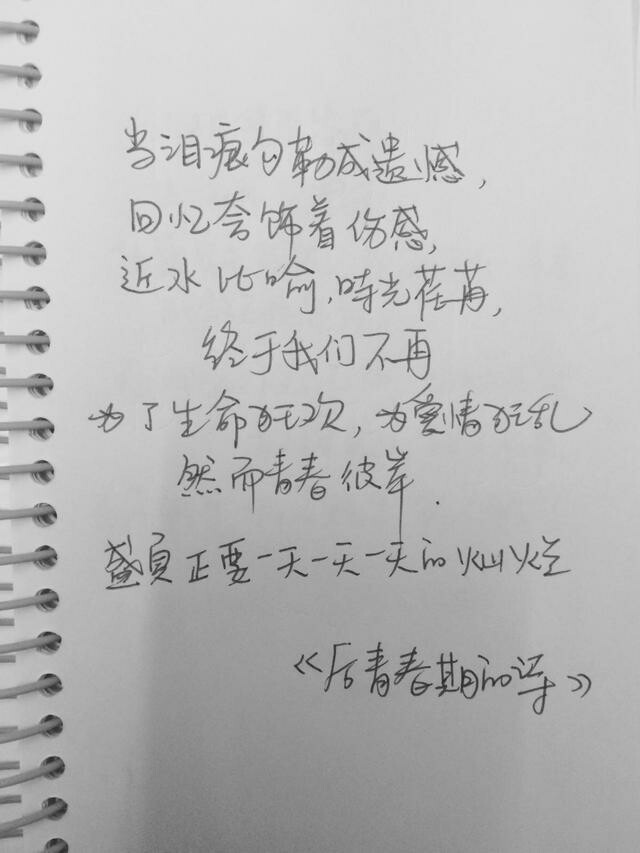 当泪痕勾勒成遗憾,
回忆夸饰着伤感,
近水比喻,时光荏苒,
终于我们不再
为了生命狂欢,为爱情狂乱
然而青春彼岸.
盛夏正要一天一天一天的灿烂
《后青春期的诗》